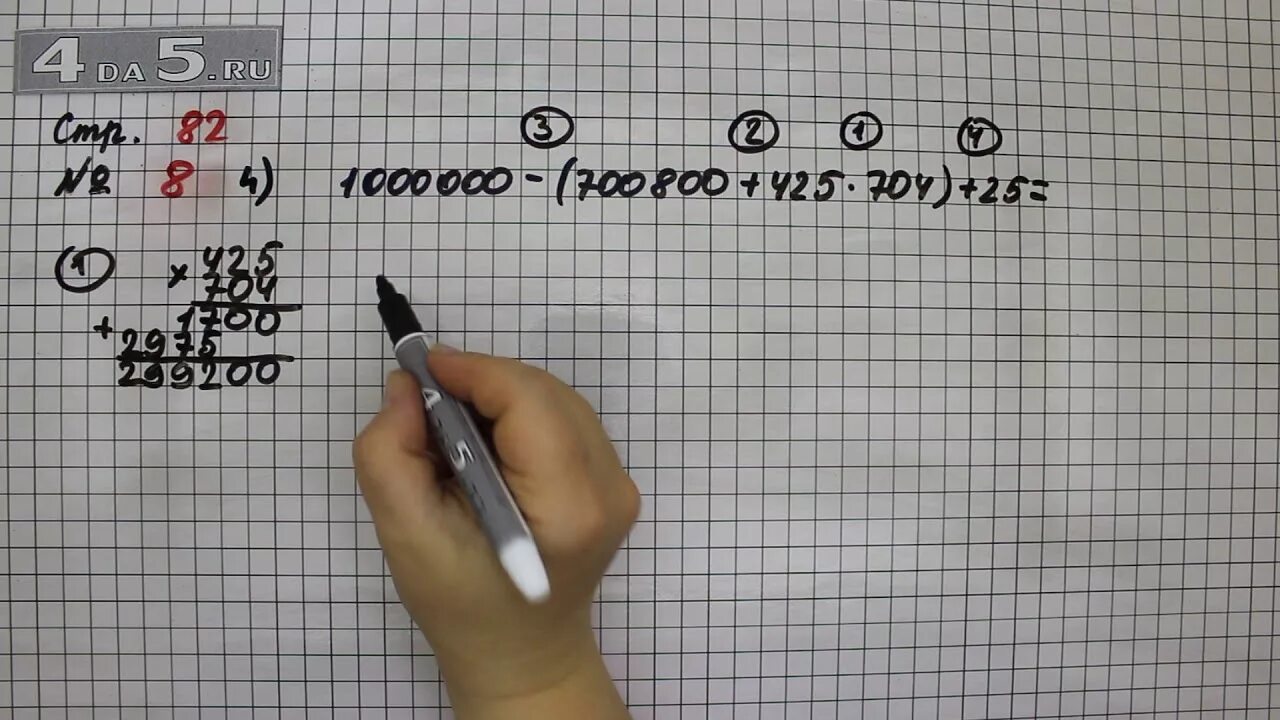 4DA5.RU
Стр. 82
③ ② ① ④
№ 8 4) 1000000-(700800+425·704)+25=
① × 425
704
1700
+ 2975
299200
4 5